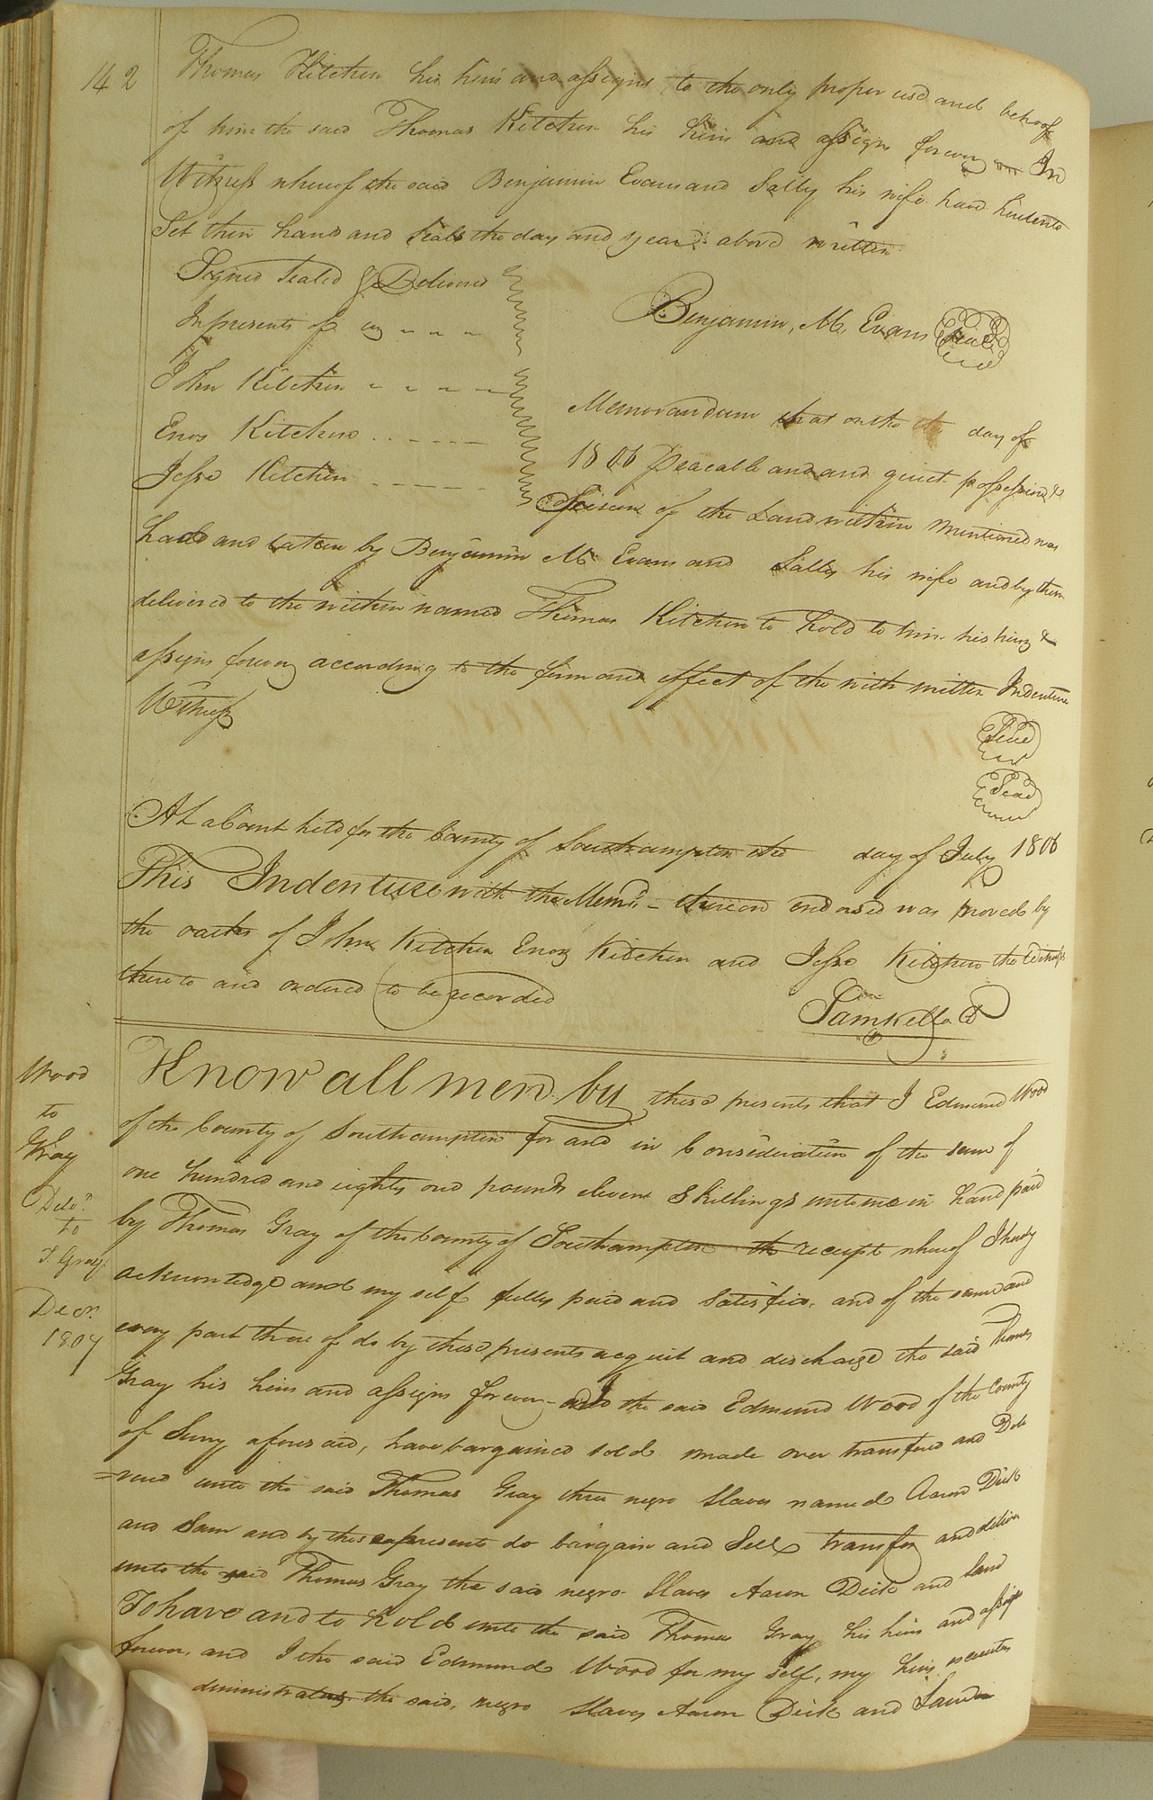 142
Thomas Kitchen his heirs and assigns to the only proper use and behoof
of him the said Thomas Kitchen his heirs and assigns forever In
Witness whereof the said Benjamin Evans and Sally his wife have hereunto
Set their hands and Seals the day and year above written
Signed Sealed & Delivered
In presents of us
Benjamin, M, Evans Seal
John Kitchen
Enos Kitchen
Jesse Kitchen
Memorandum that on the the day of
1806 Peacable and and quiet possession &
Seisin of the Land within mentioned was
had and taken by Benjamin M Evans and Sally his wife and by them
delivered to the within named Thomas Kitchen to hold to him his heirs &
assigns forever according to the form and effect of the with written Indenture
Witness
Seal
Seal
At a Court held for the County of Southampton the day of July 1806
This Indenture with the Memo. thereon endorsed was proved by
the oaths of John Kitchen Enos Kitchen and Jesse Kitchen the Witness
thereto and ordered to be recorded
Sam Kello
Know all men by these presents that I Edmund Wood
of the County of Southampton for and in Consideration of the sum of
one hundred and eighty one pounds eleven Shillings unto me in hand paid
by Thomas Gray of the County of Southampton the receipt whereof I hereby
acknowledge and my self fully paid and Satisfied, and of the same and
every part thereof do by these presents acquit and discharge the said Thomas
Gray his heirs and assigns forever the said Edmund Wood of the County
of Surry aforesaid, have bargained sold made over transfered and Deli
=vered unto the said Thomas Gray three negro Slaves named Aaron Dick
and Sam and by these presents do bargain and Sell transfer and deliver
unto the said Thomas Gray the said negro Slaves Aaron Dick and Sam
To have and to hold unto the said Thomas Gray his heirs and assigns
forever, and I the said Edmund Wood for my Self, my heirs executors
dministrators the said, negro Slaves Aaron Dick and Sam
Wood
to
Gray
Deld.
to
T Gray
Decr.
1807